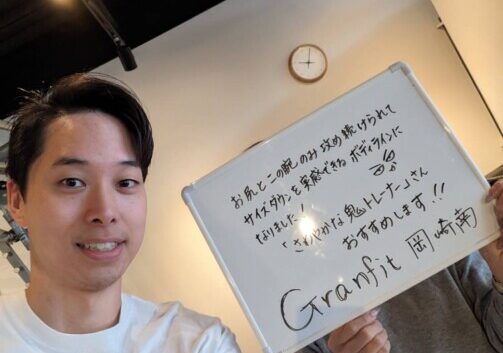 お尻とこの腕のみ攻め続けられて
サイズダウンを実感できるボディラインに
なりました!
「さわやかな鬼トレーナー」さん
おすすめします!!
Granfit 岡崎南